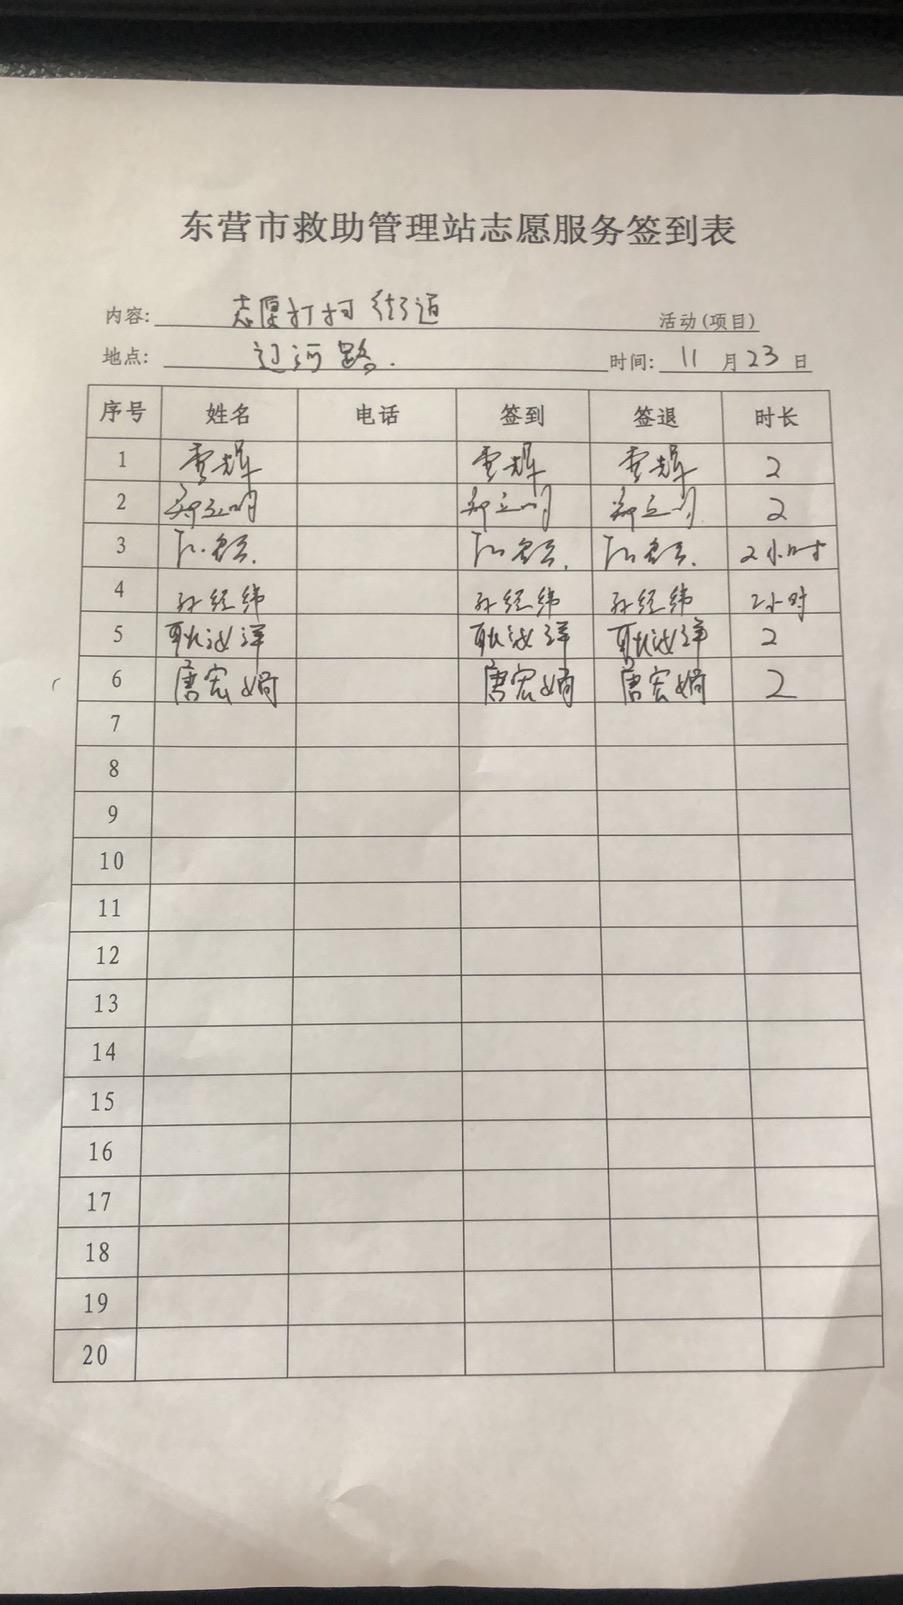 东营市救助管理站志愿服务签到表
内容: 志愿打扫街道 活动(项目)
地点: 辽河路. 时间: 11 月 23 日
序号 姓名 电话 签到 签退 时长
1 2
2 郑立明 郑立明 郑立明 2
3 2小时
4 孙经纬 孙经纬 孙经纬 2小时
5 耿汝洋 耿汝洋 耿汝洋 2
6 唐宏娟 唐宏娟 唐宏娟 2
7
8
9
10
11
12
13
14
15
16
17
18
19
20